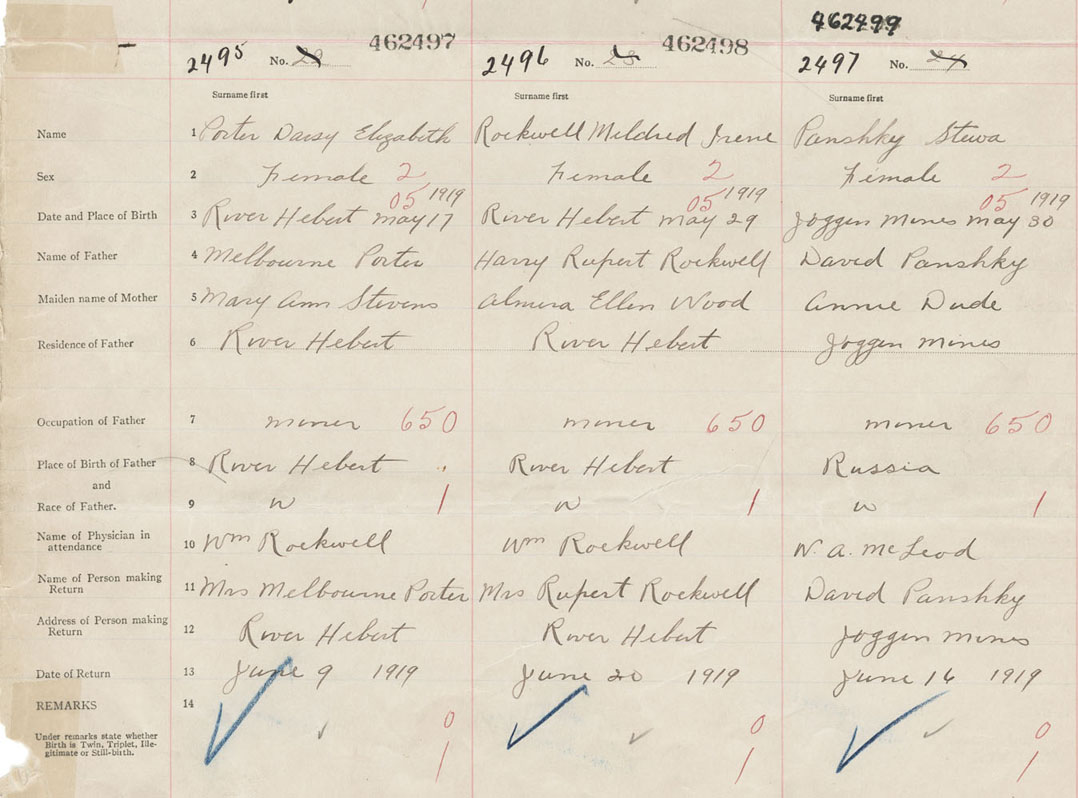 462499
462497 462498
2495 No. 22 2496 No. 23 2497 No. 24
Surname first Surname first Surname first
Name 1 Porter Daisy Elizabeth Rockwell Mildred Irene Panshky Stewa
Sex 2 Female 2 Female 2 Female 2
05 1919 05 1919 05 1919
Date and Place of Birth 3 River Hebert may 17 River Hebert may 29 Joggen Mines may 30
Name of Father 4 Melbourne Porter Harry Rupert Rockwell David Panshky
Maiden name of Mother 5 Mary Ann Stevens Almira Ellen Wood Annie Dude
Residence of Father 6 River Hebert River Hebert Joggen mines
Occupation of Father 7 miner 650 miner 650 miner 650
Place of Birth of Father 8 River Hebert River Hebert Russia
and
Race of Father. 9 W 1 W 1 W 1
Name of Physician in
attendance 10 Wm Rockwell Wm Rockwell W. A. McLeod
Name of Person making
Return 11 Mrs Melbourne Porter Mrs Rupert Rockwell David Panshky
Address of Person making
Return 12 River Hebert River Hebert Joggen mines
Date of Return 13 June 9 1919 June 20 1919 June 16 1919
REMARKS 14
0 0 0
Under remarks state whether
Birth is Twin, Triplet, Ille-
gitimate or Still-birth.
1 1 1